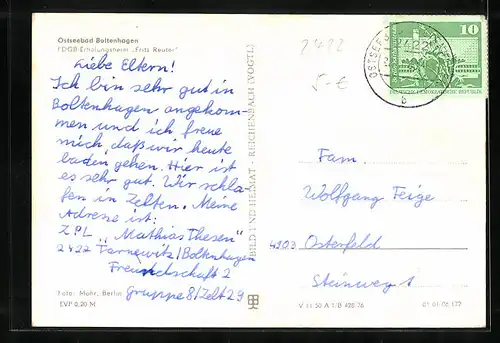 Ostseebad Boltenhagen
FDGB-Erholungsheim „Fritz Reuter“
Liebe Eltern!
Ich bin sehr gut in
Boltenhagen angekom-
men und ich freue
mich, daß wir heute
baden gehen. Hier ist
es sehr gut. Wir schla-
fen in Zelten. Meine
Adresse ist:
Z.P.L. „Mathias Thesen“
2422 Tarnewitz/Boltenhagen
Freundschaft 2
Gruppe 8/Zelt 29
Foto: Mohr, Berlin
EVP 0,20 M
BILD UND HEIMAT · REICHENBACH (VOGTL)
2422
5,-€
OSTSEE
2422
b
10
DEUTSCHE DEMOKRATISCHE REPUBLIK
Fam.
Wolfgang Feige
4903 Osterfeld
Steinweg 1
V 11 50 A 1/B 428/76
01 01 02 172